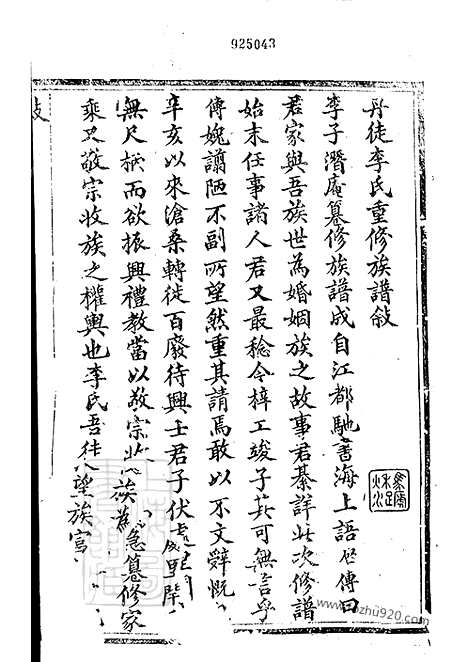 925043
丹徒李氏重修族譜敘
李子潛庵纂修族譜成自江都馳書海上語啟傳曰
君家與吾族世為婚姻族之故事君綦詳此次修譜
始末任事諸人君又最稔今梓工竣子其可無言乎
傳媿譾陋不副所望然重其請焉敢以不文辭慨
辛亥以來滄桑轉徙百廢待興士君子伏處
無尺柄而欲振興禮教當以敬宗收族為急纂修家
乘又敬宗收族之權輿也李氏吾徒望族
敘